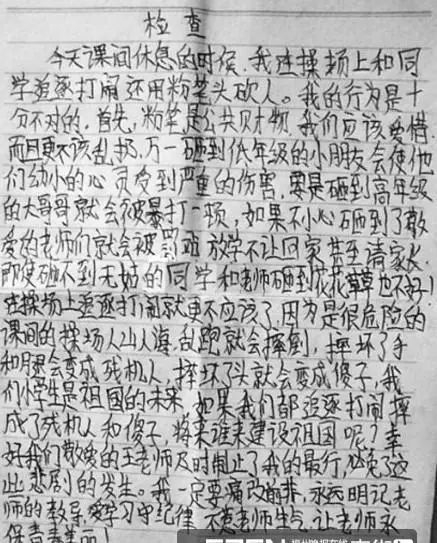 检查
今天课间休息的时候，我连操场上和同
学追逐打闹还用粉笔头砍人。我的行为是十
分不对的，首先，粉笔是公共财物，我们应该爱惜
而且更不该乱扔，万一砸到低年级的小朋友会使他
们幼小的心灵受到严重的伤害，要是砸到高年级
的大哥哥就会被暴打一顿，如果不小心砸到了敬
爱的老师们就会被罚站放学不让回家甚至请家长
即使砸不到无姑的同学和老师砸到花花草草也不好！
连操场上追逐打闹就更不应该了，因为是很危险的
课间的操场人山人海，乱跑就会摔倒，摔坏了手
和腿会变成残机人，摔坏了头就会变成傻子，我
们小学生是祖国的未来，如果我们都追逐打闹摔
成了残机人和傻子，将来谁来建设祖国呢？幸
好我们敬爱的王老师及时制止了我的最行，避免了这
些悲剧的发生。我一定要痛改前非，永远明记老
师的教导，爱学习守纪律不惹老师生气，让老师永
保青春美丽！